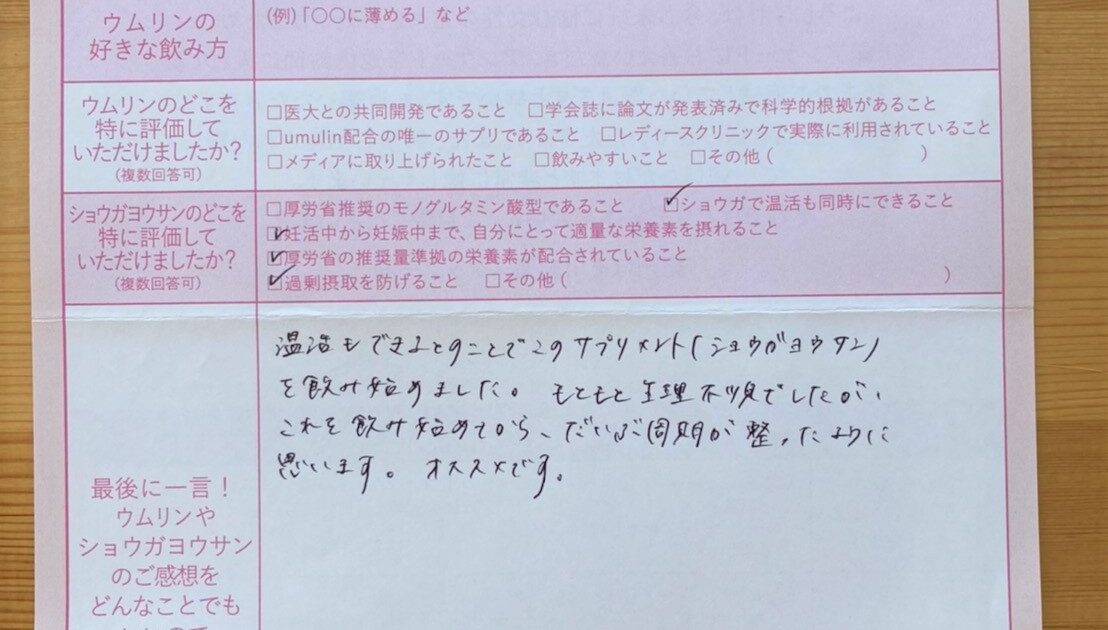 ウムリンの
好きな飲み方
(例)「〇〇に薄める」など
ウムリンのどこを
特に評価して
いただけましたか?
(複数回答可)
□医大との共同開発であること □学会誌に論文が発表済みで科学的根拠があること
□umulin配合の唯一のサプリであること □レディースクリニックで実際に利用されていること
□メディアに取り上げられたこと □飲みやすいこと □その他( )
ショウガヨウサンのどこを
特に評価して
いただけましたか?
(複数回答可)
□厚労省推奨のモノグルタミン酸型であること ☑ショウガで温活も同時にできること
☑妊活中から妊娠中まで、自分にとって適量な栄養素を摂れること
☑厚労省の推奨量準拠の栄養素が配合されていること
☑過剰摂取を防げること □その他( )
温活もできるとのことでこのサプリメント(ショウガヨウサン)
を飲み始めました。もともと生理不順でしたが、
これを飲み始めてから、だいぶ周期が整ったように
思います。オススメです。
最後に一言!
ウムリンや
ショウガヨウサン
のご感想を
どんなことでも